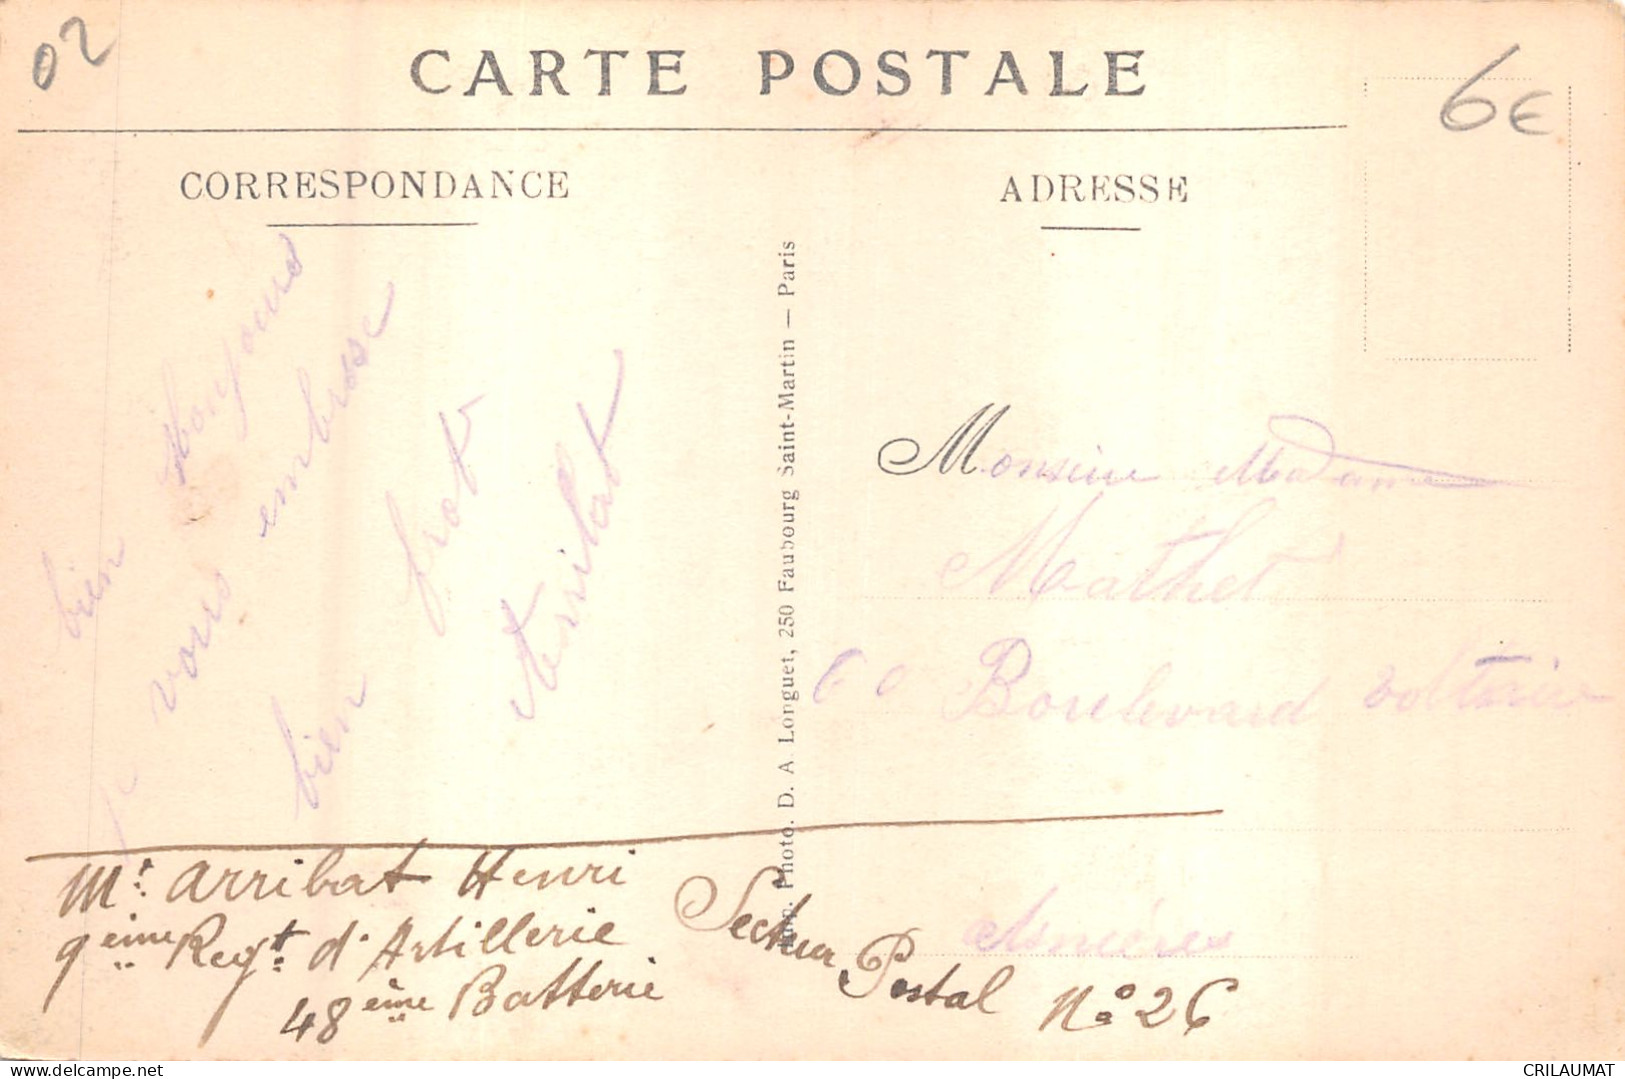 02
CARTE POSTALE
6€
CORRESPONDANCE
ADRESSE
bien bonjour
vous embrasse
bien frot
Arribat
Imp. Photo. D. A. Longuet, 250 Faubourg Saint-Martin — Paris
Monsieur Madame
Mathet
60 Boulevard voltaire
Asnières
Mr. Arribat Henri
9ème Regt. d'Artillerie
48ème Batterie
Secteur Postal N° 26
CRILAUMAT